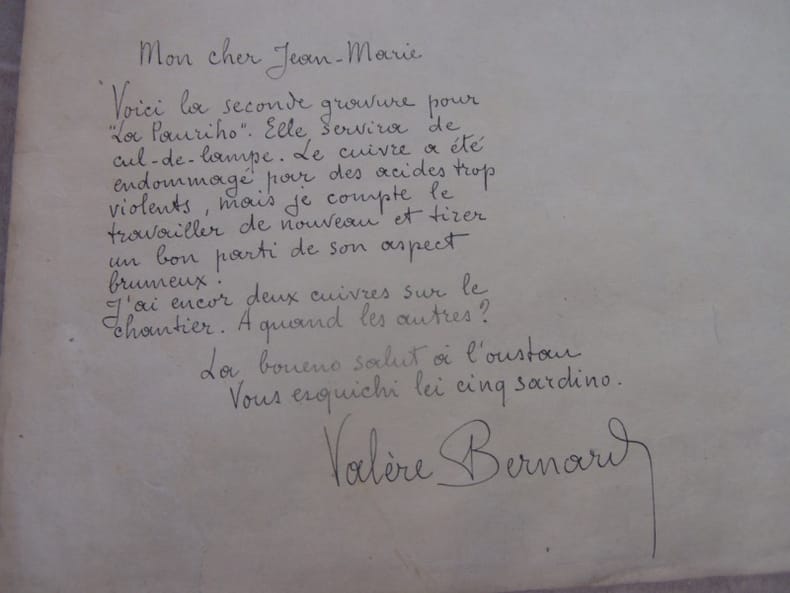 Mon cher Jean-Marie
Voici la seconde gravure pour
"La Pauriho". Elle servira de
cul-de-lampe. Le cuivre a été
endommagé par des acides trop
violents, mais je compte le
travailler de nouveau et tirer
un bon parti de son aspect
brumeux.
J'ai encor deux cuivres sur le
chantier. A quand les autres?
La boueno salut à l'oustau
Vous esquichi lei cinq sardino.
Valère Bernard